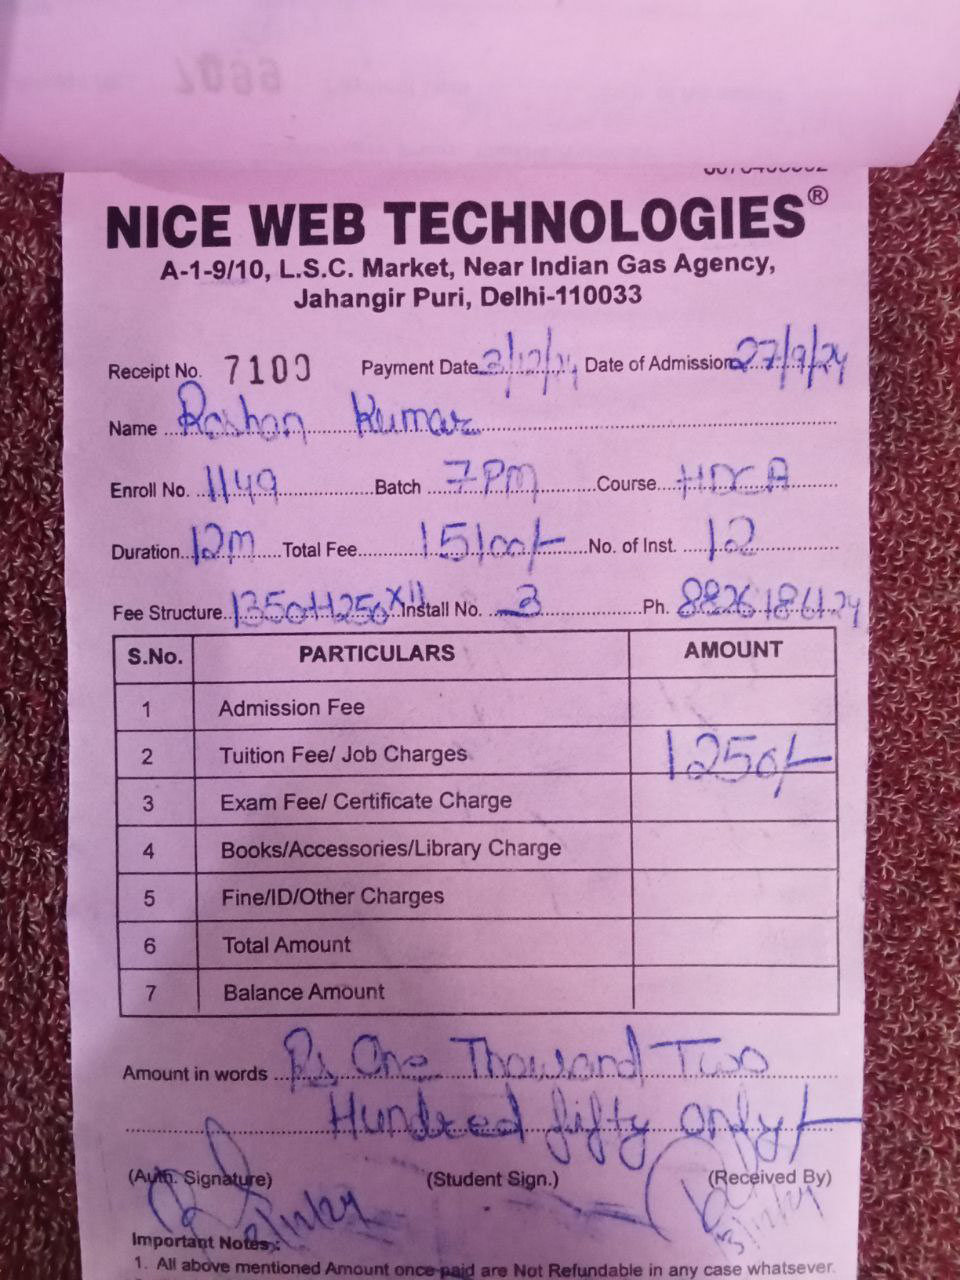 NICE WEB TECHNOLOGIES®
A-1-9/10, L.S.C. Market, Near Indian Gas Agency,
Jahangir Puri, Delhi-110033
Receipt No. 7100 Payment Date 3/12/24 Date of Admission 27/9/24
Name Roshan Kumar
Enroll No. 1149 Batch 7PM Course HDCA
Duration 12m Total Fee 15100/- No. of Inst. 12
Fee Structure 1350+1250X11 Install No. 3 Ph.
S.No. PARTICULARS AMOUNT
1 Admission Fee
2 Tuition Fee/ Job Charges 1250/-
3 Exam Fee/ Certificate Charge
4 Books/Accessories/Library Charge
5 Fine/ID/Other Charges
6 Total Amount
7 Balance Amount
Amount in words Rs One Thousand Two
Hundred fifty only/-
(Auth. Signature) (Student Sign.) (Received By)
3/12/24 3/12/24
Important Notes :
1. All above mentioned Amount once paid are Not Refundable in any case whatsever.